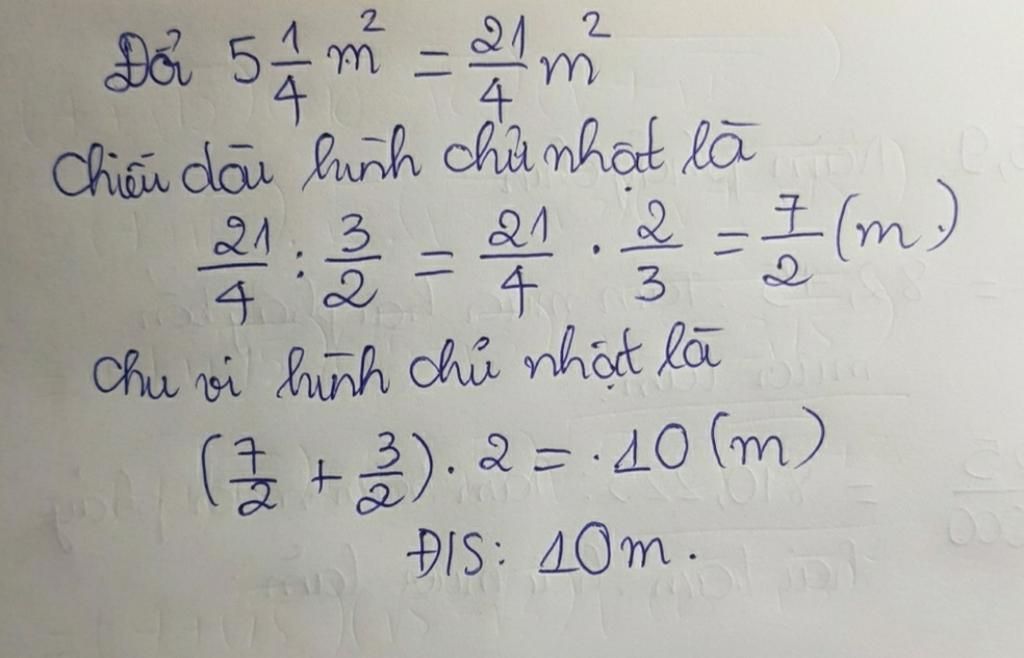 Đổi 5 1/4 m² = 21/4 m²
Chiều dài hình chữ nhật là
21/4 : 3/2 = 21/4 . 2/3 = 7/2 (m)
Chu vi hình chữ nhật là
(7/2 + 3/2) . 2 = 10 (m)
Đ/S: 10m.